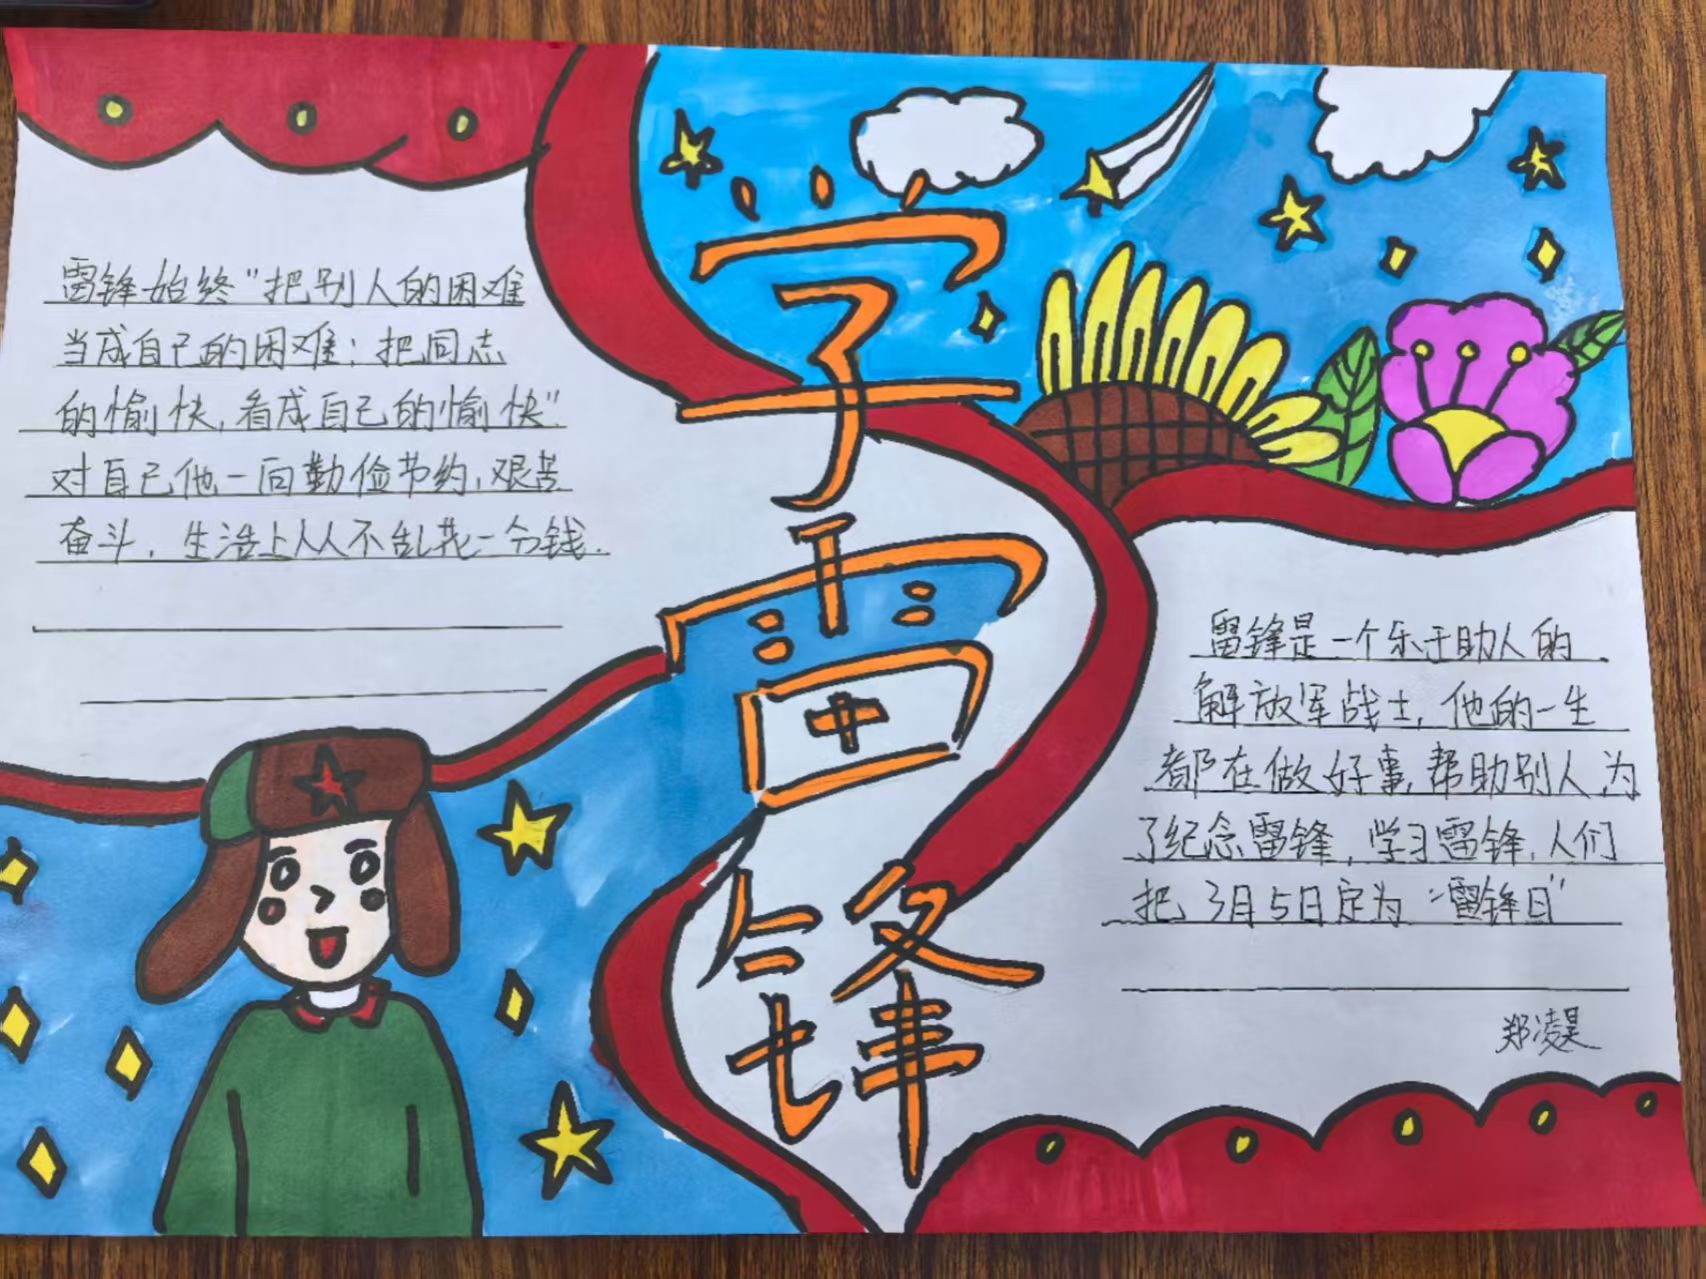 学雷锋
雷锋始终"把别人的困难
当成自己的困难；把同志
的愉快，看成自己的愉快"
对自己他一向勤俭节约，艰苦
奋斗，生活上从不乱花一分钱.
雷锋是一个乐于助人的
解放军战士，他的一生
都在做好事，帮助别人为
了纪念雷锋，学习雷锋，人们
把3月5日定为"雷锋日"
郑凌昊